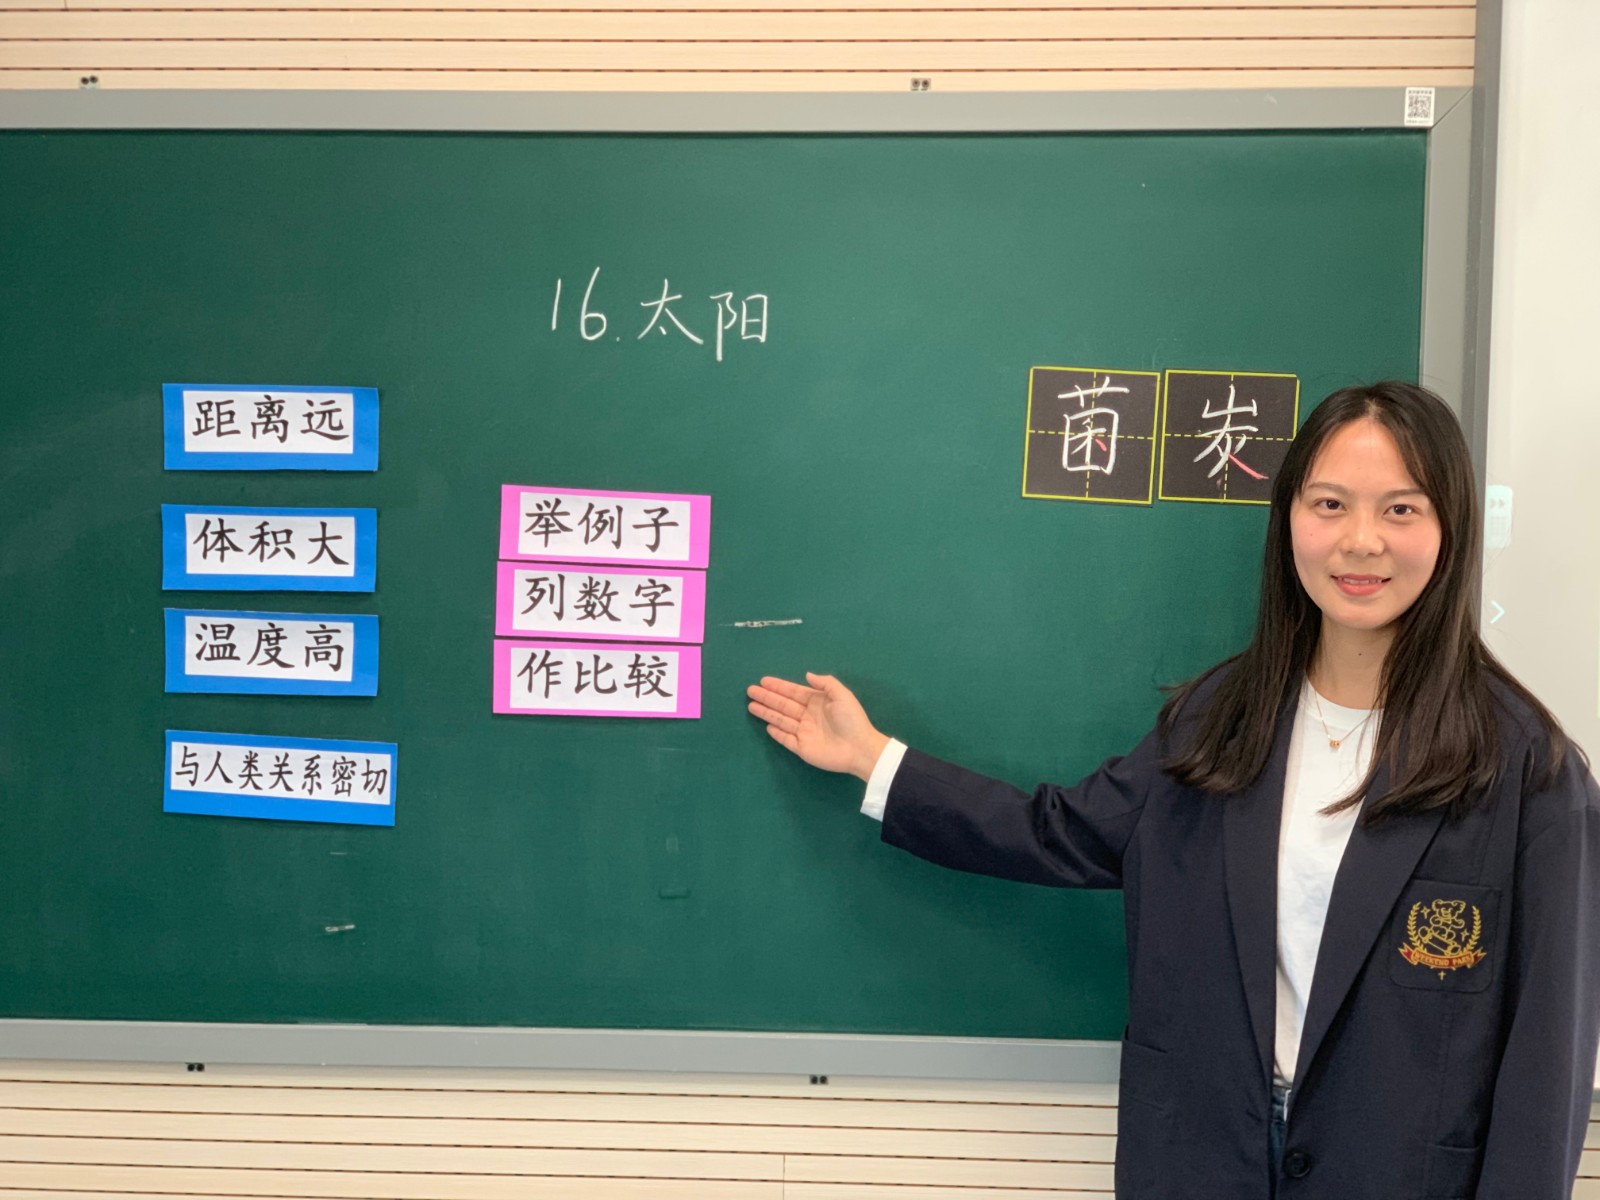 16.太阳
距离远
体积大
温度高
与人类关系密切
举例子
列数字
作比较
菌 炭